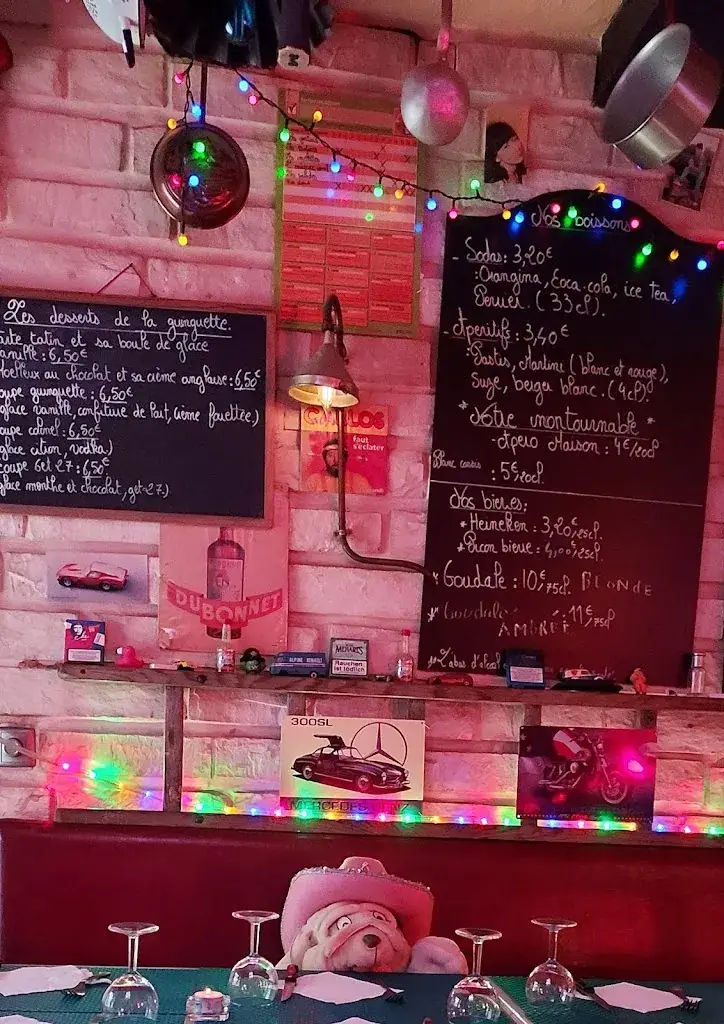 Les desserts de la guinguette.
tatin et sa boule de glace
: 6,50€
Moelleux au chocolat et sa crème anglaise : 6,50€
coupe guinguette : 6,50€
glace vanille, confiture de lait, crème fouettée)
coupe colonel : 6,50€
glace citron, vodka)
coupe Get 27 : 6,50€
glace menthe et chocolat, get 27.)
Nos boissons
- Sodas : 3,20€
: Orangina, Coca-cola, ice tea,
Perrier. (33cl).
- Apéritifs : 3,40€
: Pastis, Martini (blanc et rouge),
Suze, berger blanc. (4cl).
* Notre incontournable *
- Apéro Maison : 4€/20cl
Blanc cassis : 5€/20cl.
Nos bières :
* Heineken : 3,20€/25cl.
* Picon bière : 4,00€/25cl.
* Goudale : 10€/75cl. BLONDE
* Goudale : 11€/75cl
AMBRÉE
* L'abus d'alcool
CARLOS
faut
s'éclater
DUBONNET
ALPINE RENAULT
Rauchen
ist tödlich
300SL
MERCEDES-BENZ